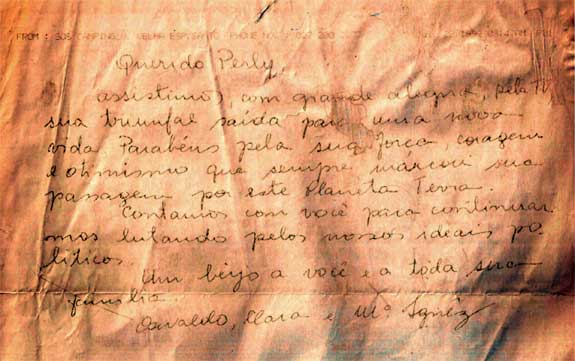 FROM : SOS CAMPING VILA VELHA ESP SANTO PHONE NO. : 027 200
Querido Perly,
assistimos, com grande alegria, pela TV
sua triunfal saída para uma nova
vida Parabéns pela sua força, coragem
e otimismo que sempre marcou sua
passagem por este Planeta Terra.
Contamos com você para continuar
mos lutando pelos nossos ideais po
líticos.
Um beijo a você e a toda sua
família.
Osvaldo, Clara e Mª Ignêz